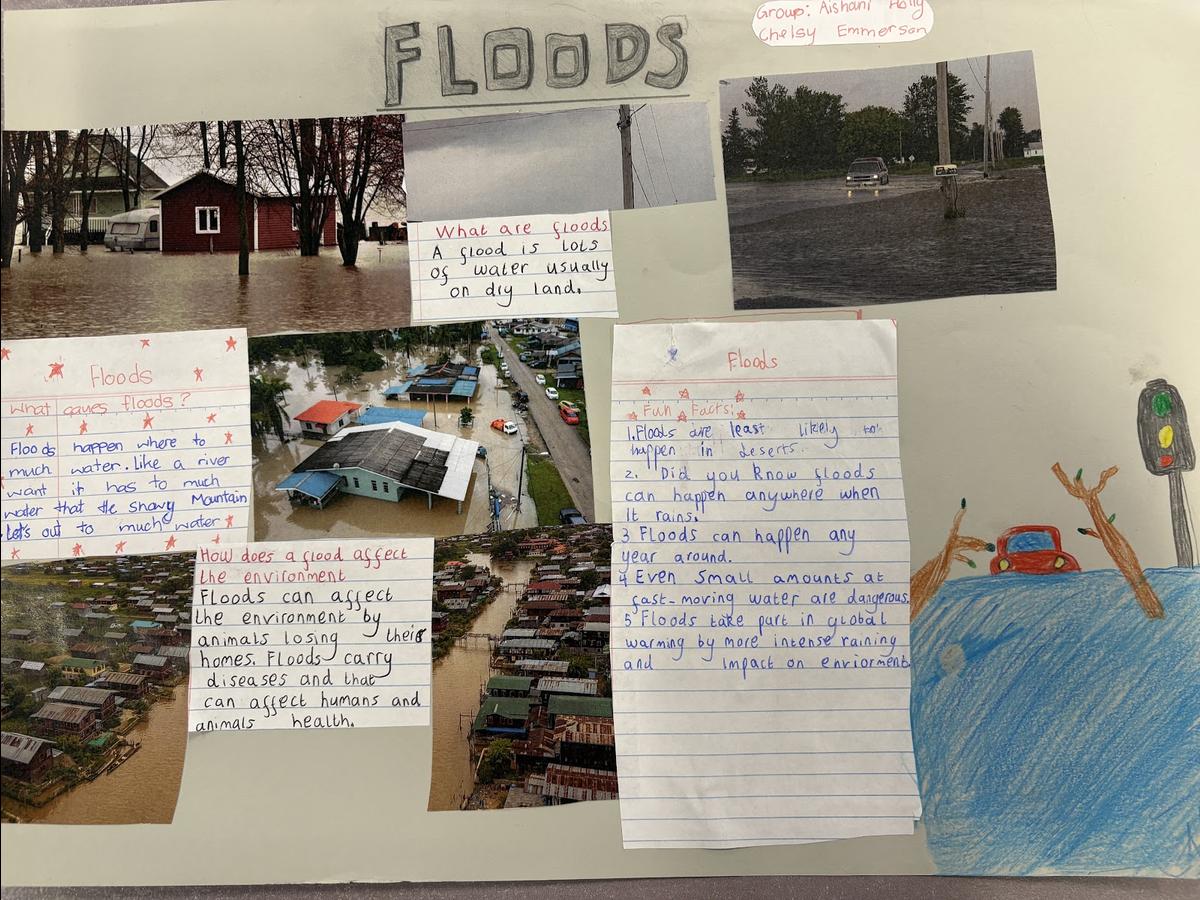 FLOODS
Group: Aishani Holly
Chelsy Emmerson
What are floods
A flood is lots
of water usually
on dry land.
Floods
What caues floods?
Floods happen where to
much water. like a river
want it has to much
water that the Mountain
Let's out to much water
How does a flood affect
the environment
Floods can affect
the environment by
animals losing their
homes. Floods carry
diseases and that
can affect humans and
animals health.
Floods
Fun Facts!
1. Floods are least likely to
happen in deserts.
2. Did you know floods
can happen anywhere when
It rains.
3 Floods can happen any
year around.
4 Even small amounts at
fast-moving water are dangerous.
5 Floods take part in global
warming by more intense raining
and impact on enviorment